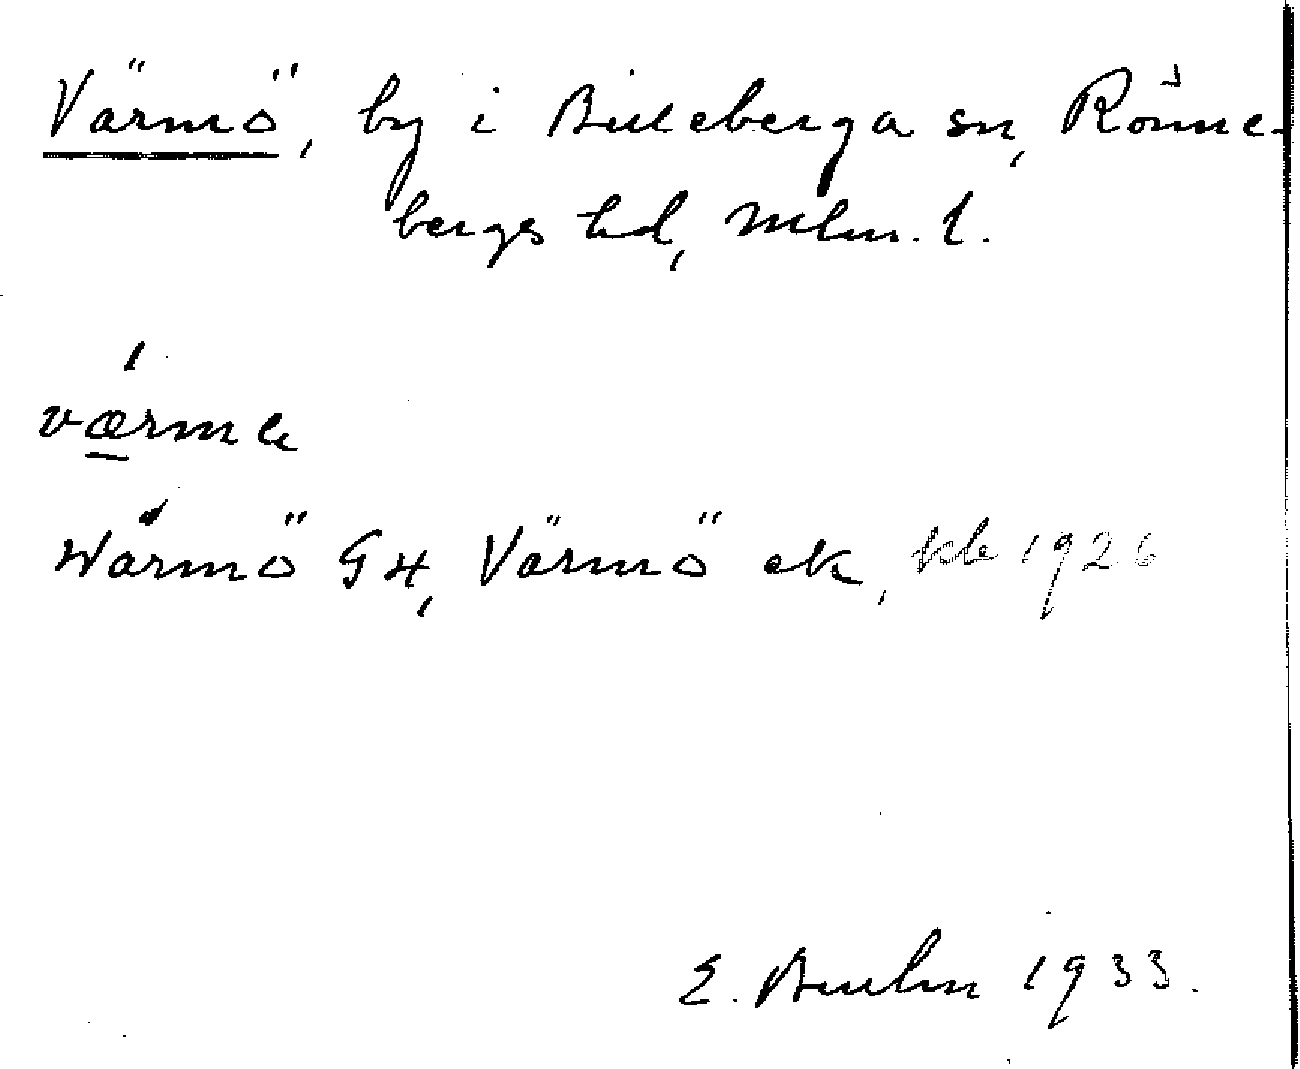 Värmö, by i Billeberga sn, Rönne-
bergs hd, Mlm. l.
værme
Wärmö G4, Värmö ek, kb 1926
E. Bruhn 1933.